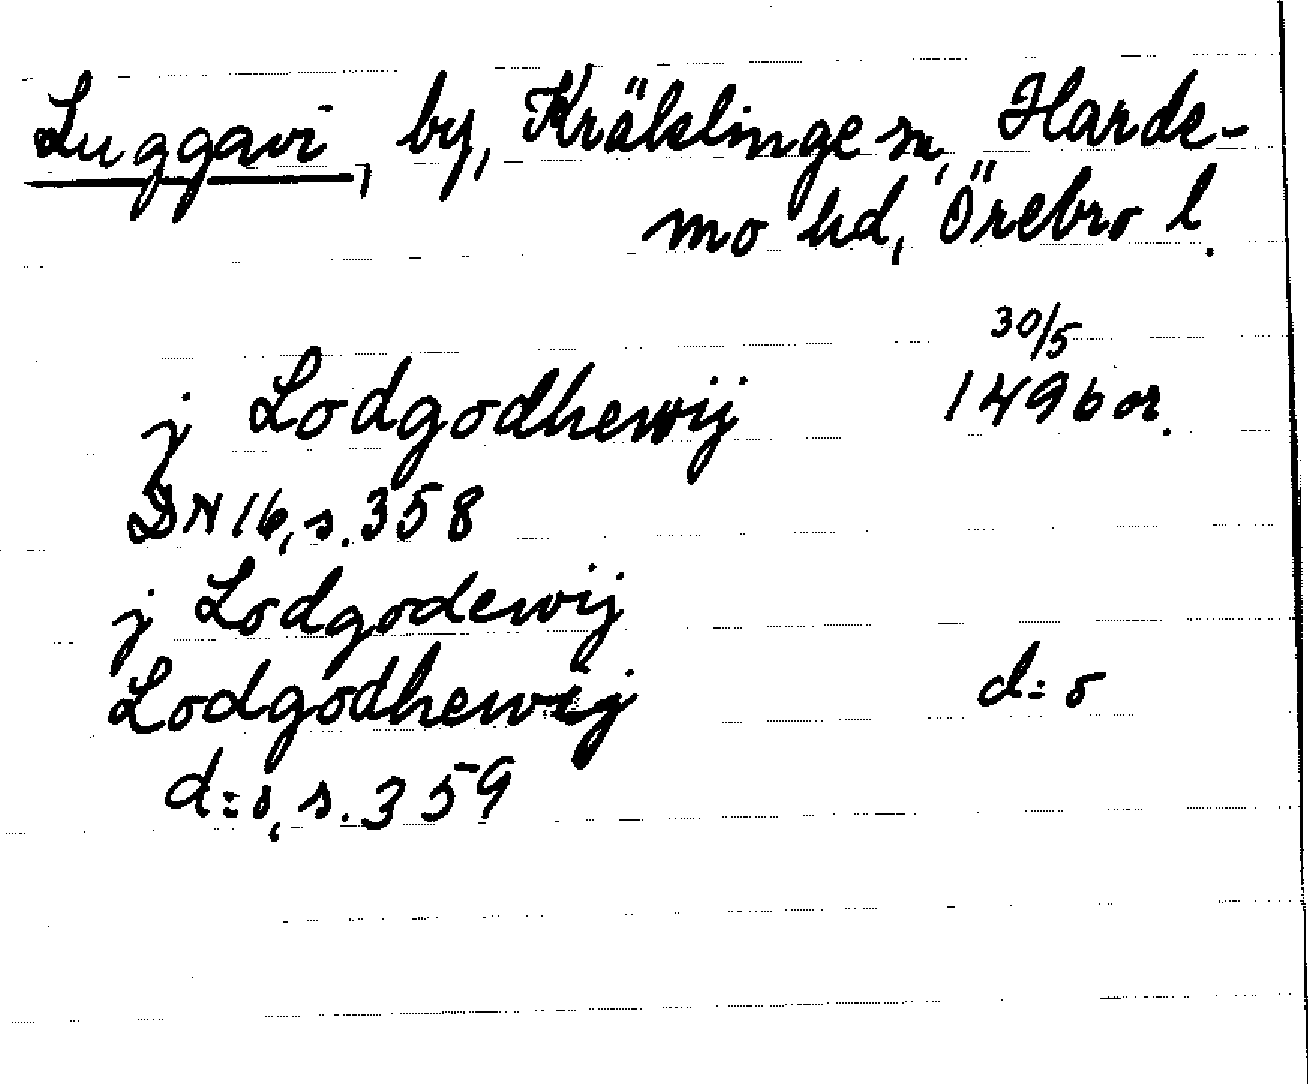 Luggavi, by, Kräklinge sn, Harde-
mo hd, Örebro l.
30/5
j Lodgodhewij 1496 or.
DN 16, s. 358
j Lodgodewij
Lodgodhewij d:o
d:o, s. 359